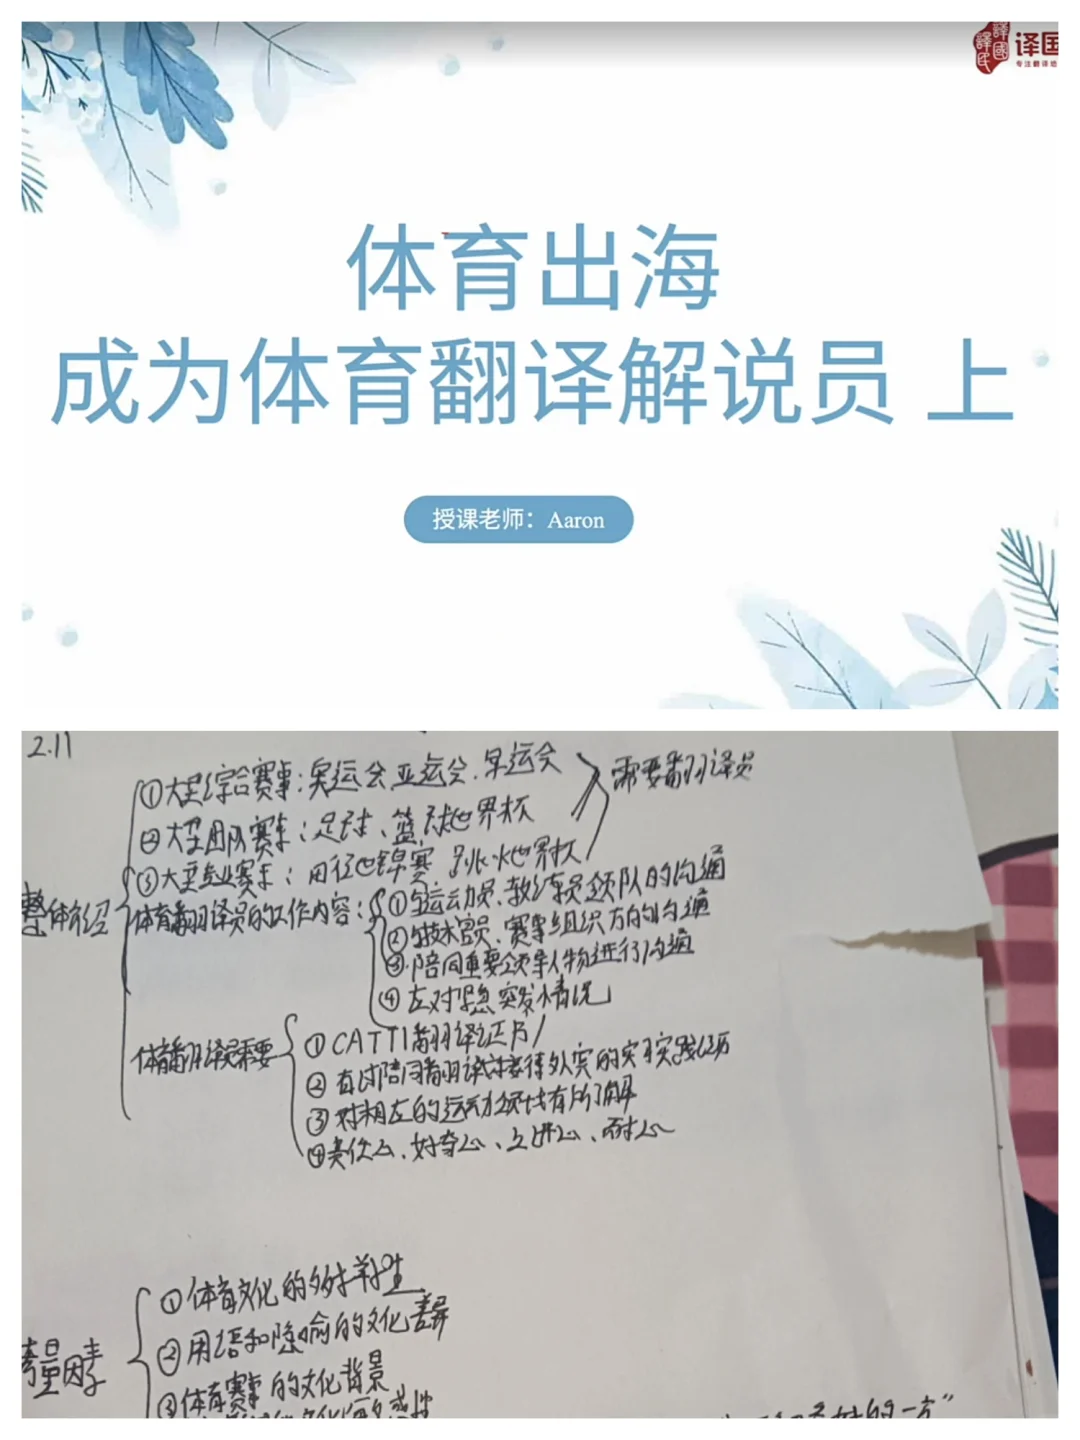 譯國譯民
译国
专注翻译培
体育出海
成为体育翻译解说员 上
授课老师：Aaron
2.11
①大型综合赛事：奥运会、亚运会、
需要翻译员
②大型团队赛事：足球、篮球世界杯
③大型专业赛事：田径世锦赛、跳水世界杯
整体介绍
体育翻译员的工作内容：
①与运动员、教练员、领队的沟通
②与技术官员、赛事组织方的沟通
③陪同重要领导人物进行沟通
④应对紧急突发情况
体育翻译员需要
①CATTI翻译证书
②有过陪同翻译或接待外宾的实践经历
③对相应的运动项目有所了解
④责任心、好奇心、上进心、耐心
考量因素
①体育文化的多样性
②用语和隐喻的文化差异
③体育赛事的文化背景
的一方”